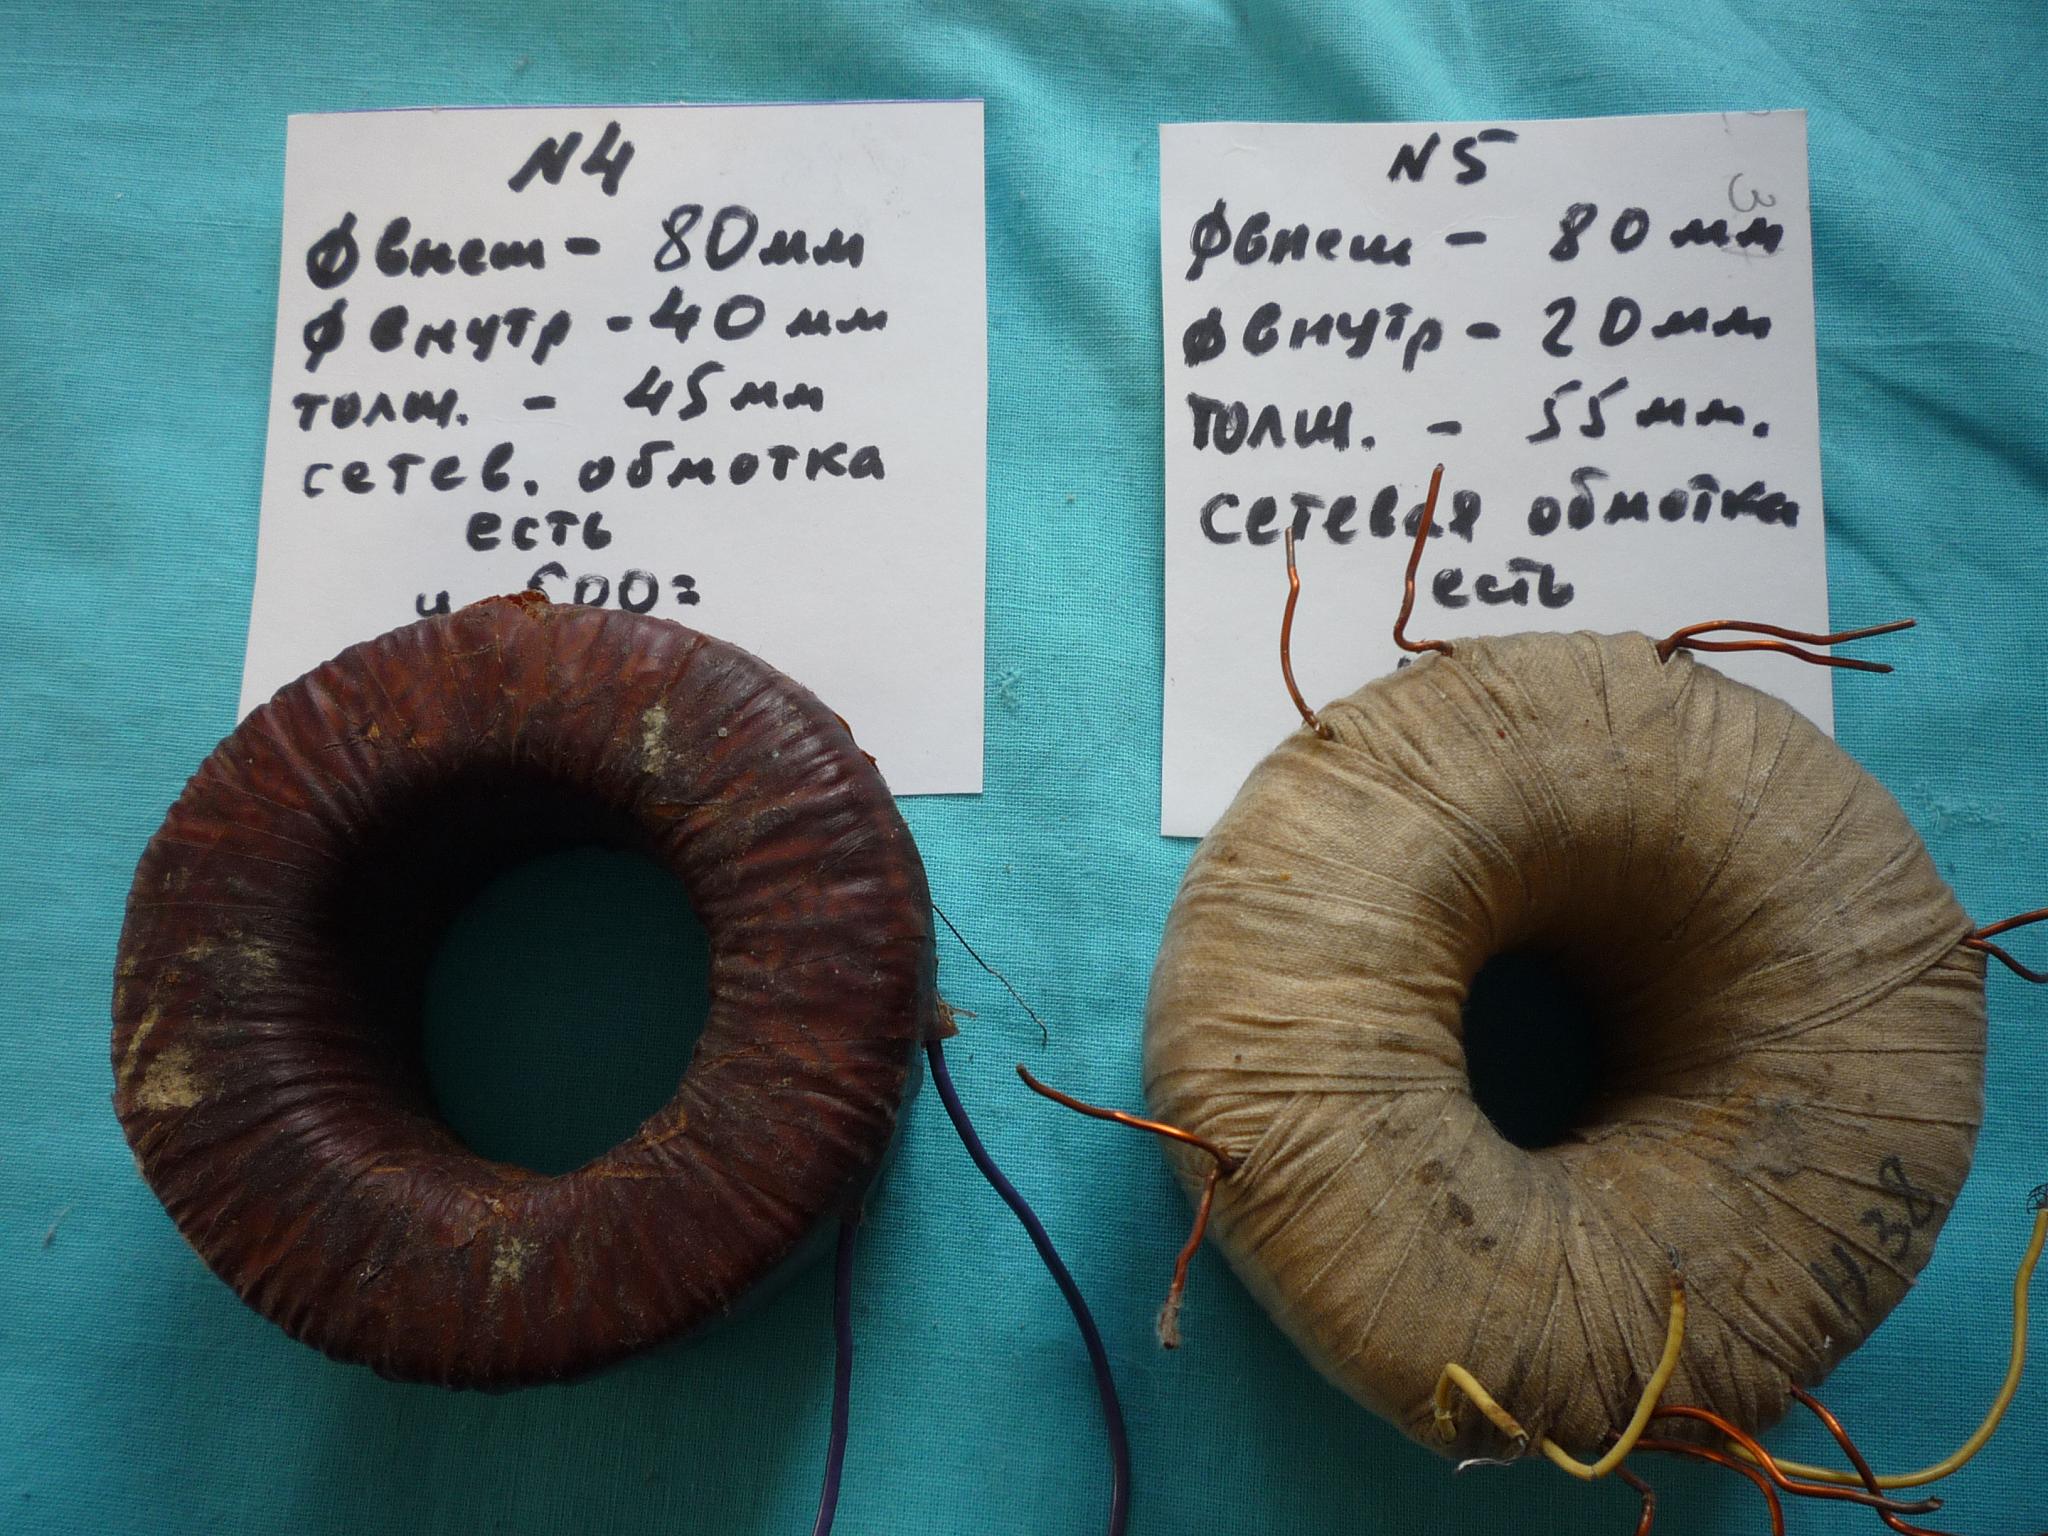 N4
φ внеш - 80мм
φ внутр - 40 мм
толщ. - 45 мм
сетев. обмотка
есть
N5
φ внеш - 80 мм
φ внутр - 20 мм
толщ. - 55 мм.
сетевая обмотка
есть